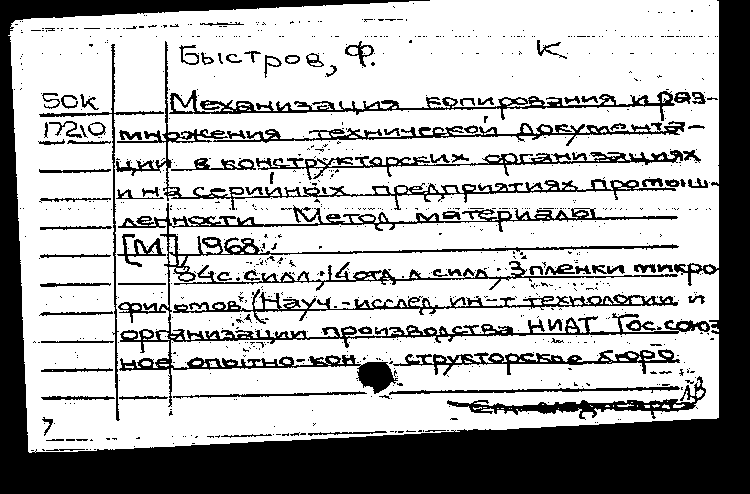 Быстров, Ф. К
50к Механизация копирования и раз-
17210 множения технической документа-
ции в конструкторских организациях
и на серийных предприятиях промыш-
ленности. Метод. материалы.
[М], 1968.
84с. с илл.; 14 отд. л. с илл.; 3 пленки микро
фильмов. (Науч.-исслед. ин-т технологии и
организации производства НИАТ. Гос. союз
ное опытно-кон структорское бюро.
ЛВ
7